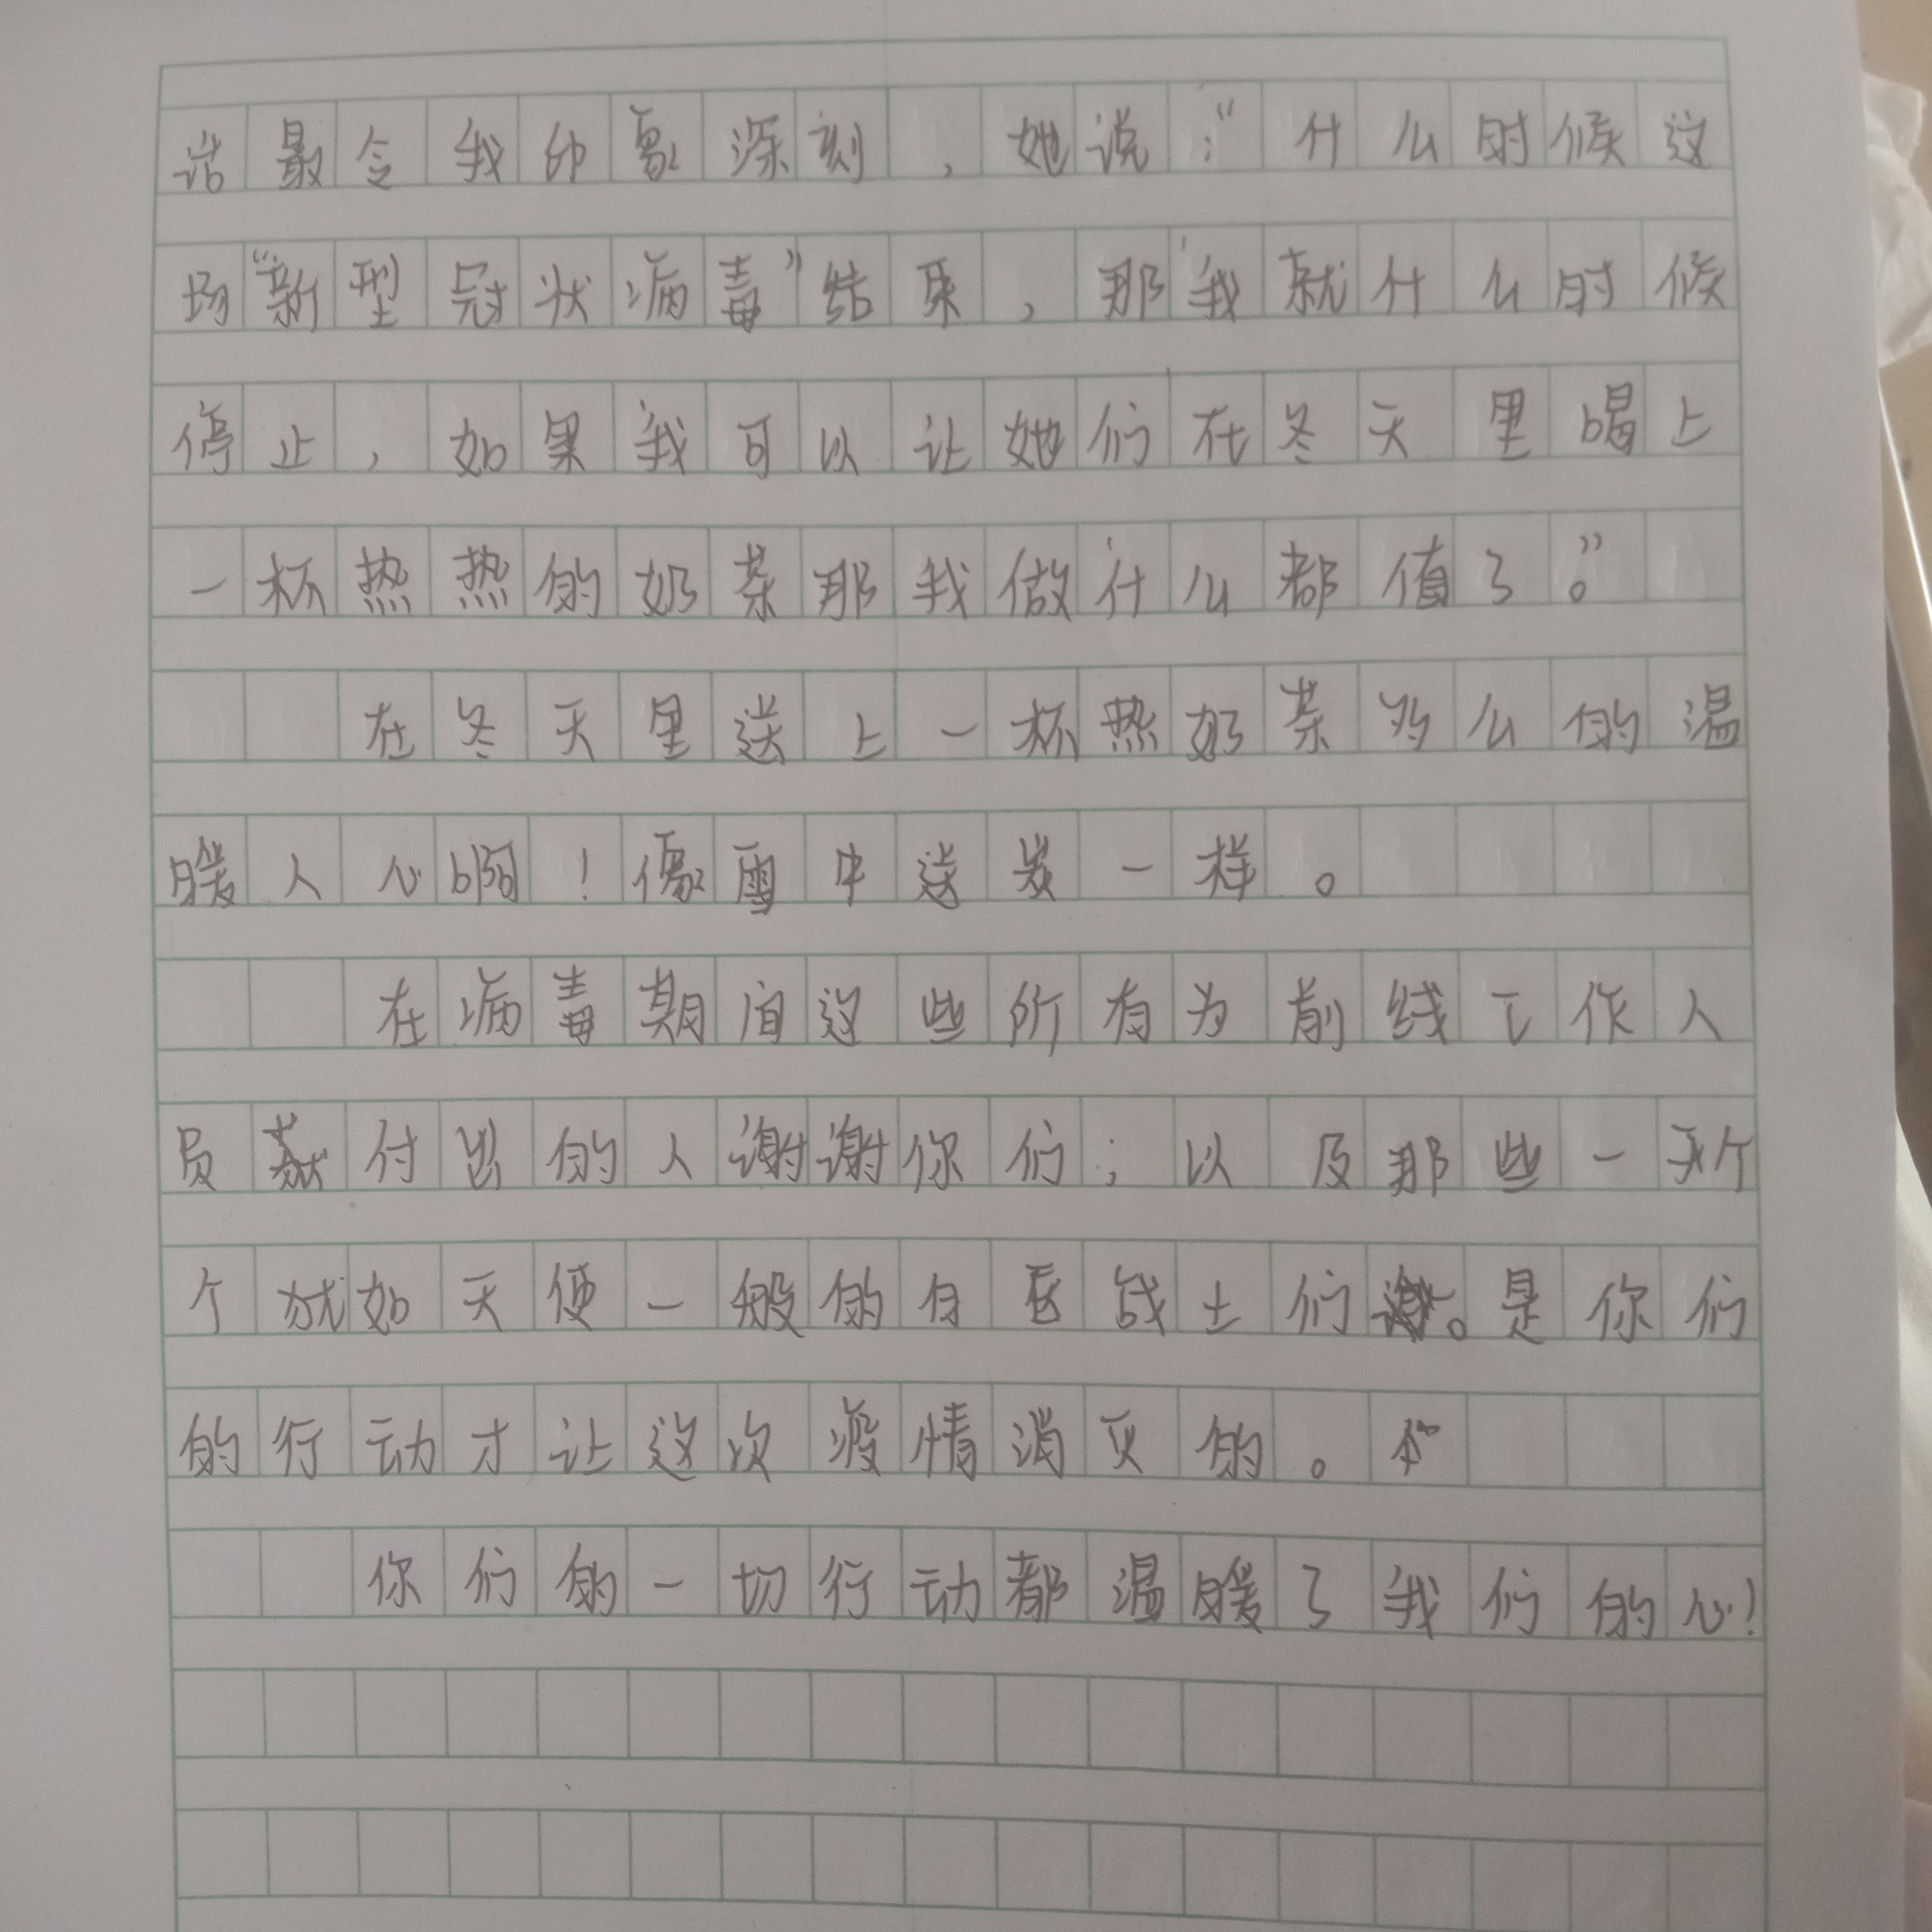 话最令我印象深刻，她说：“什么时候这
场“新型冠状病毒”结束，那我就什么时候
停止，如果我可以让她们在冬天里喝上
一杯热热的奶茶那我做什么都值了。”
在冬天里送上一杯热奶茶多么的温
暖人心啊！像雪中送炭一样。
在病毒期间这些所有为前线工作人
员付出的人谢谢你们；以及那些一
个就如天使一般的白衣战士们。是你们
的行动才让这次疫情消灭的。
你们的一切行动都温暖了我们的心！